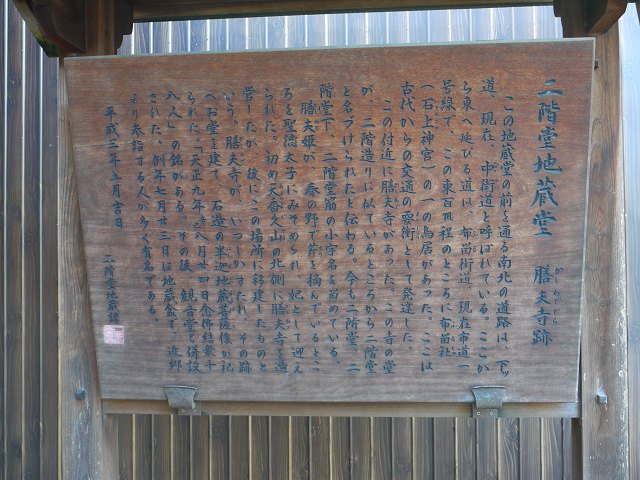 二階堂地蔵堂　膳夫寺跡
かしわでだら
この地蔵堂の前を通る南北の道路は、下ら
道、現在「中街道」と呼ばれている。ここか
ら東へ延びる道は、布留街道、現在布道一
号線で、この東百m程のところに布留社
（石上神宮）の一の鳥居があった。ここは
古代からの交通の要衝として発達した。
この付近に膳夫寺があった。この寺の堂
が、二階造りに似ているところから二階堂
と名づけられたと伝わる。今も二階堂、二
階堂下、二階堂筋の小字名を留めている。
膳夫姫が、春の野で芹を摘んでいるとこ
ろを聖徳太子にみそめられ、妃として迎え
られた。初め天香久山の北側に膳夫寺を造
営したが、後にこの場所に移建したものと
いう。膳夫寺が、いつしかすたれ、その跡
へお堂を建て、石造の半迦地蔵菩薩像が祀
られた。「天正九年 八月廿四日念佛結衆十
八人」の銘がある。その後、観音堂も併設
された。例年七月廿三日は地蔵会で、近郷
より参詣する人が多く有名である。
平成三年五月吉日
二階堂地蔵講